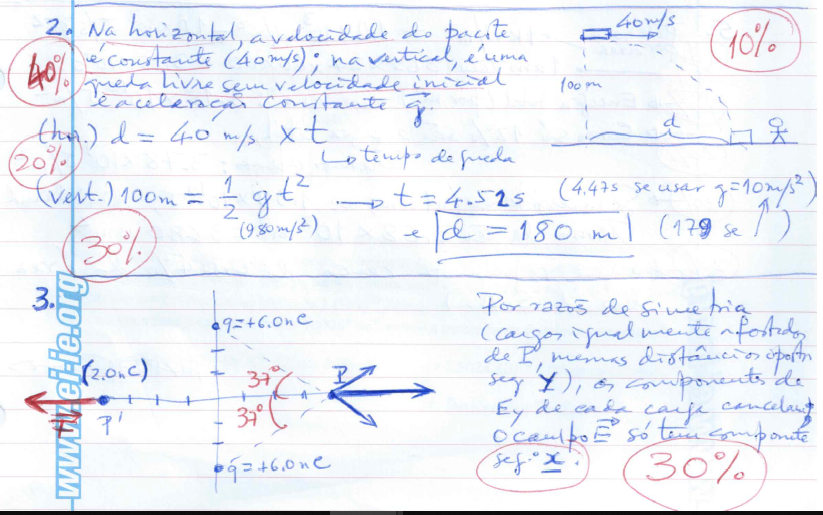 2. Na horizontal, a velocidade do pacote
é constante (40m/s); na vertical, é uma
queda livre sem velocidade inicial
e aceleração constante g.
40%
10%
40m/s
100m
d
(hor.) d = 40 m/s x t
20%
↳ tempo de queda
(vert.) 100m = 1/2 g t² → t = 4.52s (4.47s se usar g=10m/s²)
(9.80m/s²)
e d = 180 m (179 se ↑)
30%
3.
q=+6.0nC
(2.0nC)
37°
37°
P
F
P'
q=+6.0nC
Por razões de simetria
(cargas igualmente afastadas
de P, mesmas distâncias
seg Y), as componentes de
Ey de cada carga cancelam,
O campo E só tem componente
seg. x.
30%
www.ej-ie.org